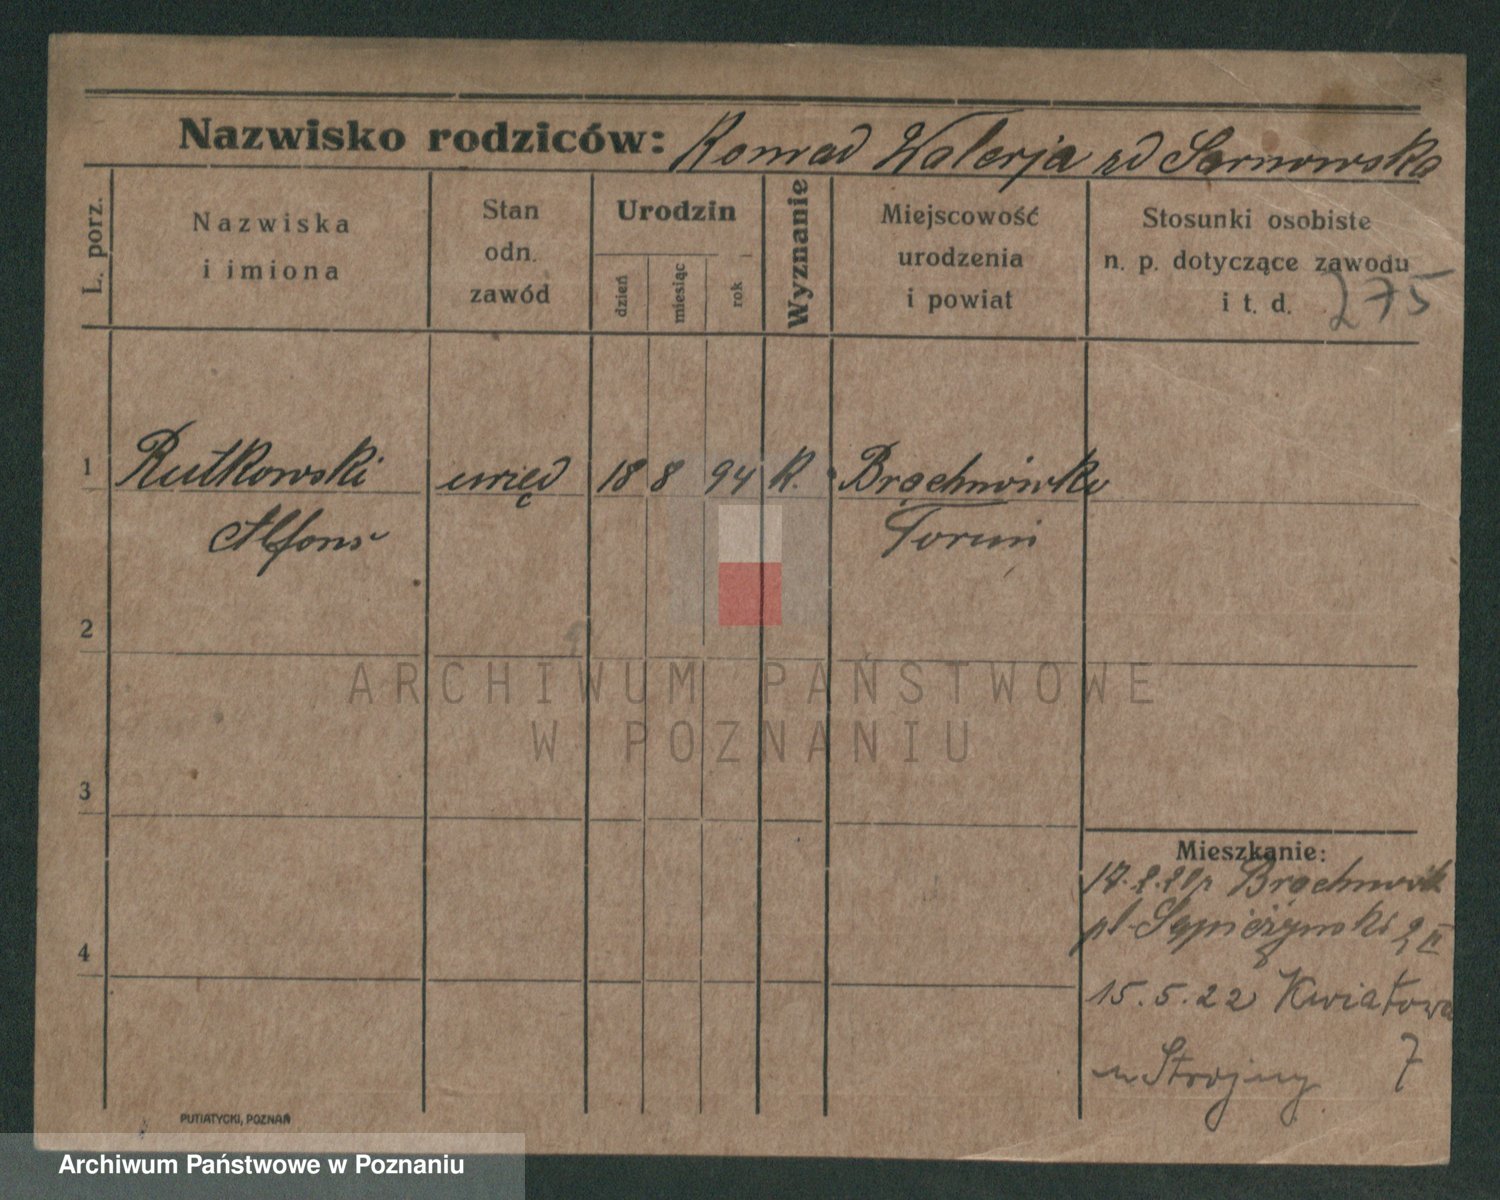 Nazwisko rodziców: Konrad Walerja zd Sarnowska
L. porz.
Nazwiska
i imiona
Stan
odn.
zawód
Urodzin
dzień
miesiąc
rok
Wyznanie
Miejscowość
urodzenia
i powiat
Stosunki osobiste
n. p. dotyczące zawodu
i t. d.
275
1 Rutkowski urzęd 18 8 94 K. Brąchnówko
Alfons Toruń
2
3
4
Mieszkanie:
pl. Sapieżyński 2 II
15.5.22 Kwiatowa
7
u Strojny
PUTIATYCKI, POZNAŃ
ARCHIWUM PAŃSTWOWE
W POZNANIU
Archiwum Państwowe w Poznaniu